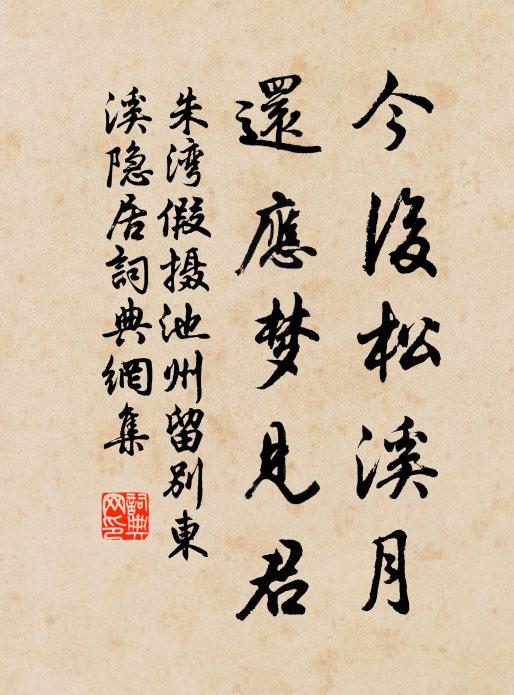 今後松溪月
還應梦見君
朱湾假摄池州留別東
溪隐居詞典網集
詞典
网印